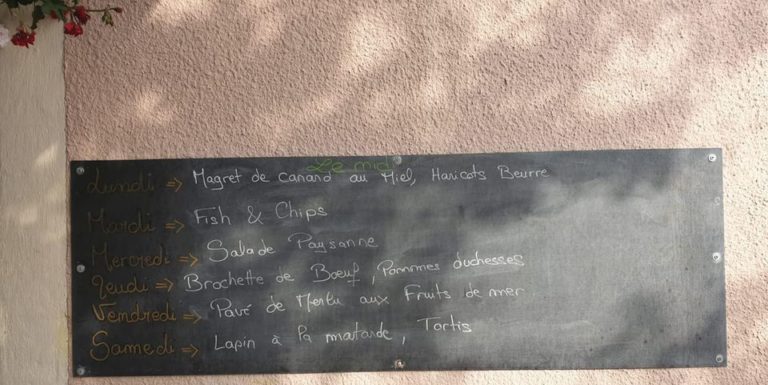 Le midi
Lundi => Magret de canard au Miel, Haricots Beurre
Mardi => Fish & Chips
Mercredi => Salade Paysanne
Jeudi => Brochette de Boeuf, Pommes duchesses
Vendredi => Pavé de Merlu aux Fruits de mer
Samedi => Lapin à la moutarde, Tortis